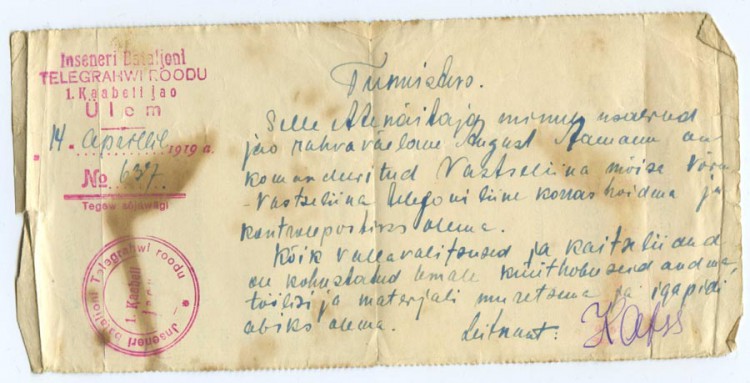 Inseneri Bataljoni
TELEGRAHWI ROODU
1. Kaabeli jao
Ülem
"14." aprillil 1919 a.
№ 637
Tegew sõjawägi
Inseneri bataljoni Telegrahwi roodu
1. Kaabeli
jagu
Tunnistus.
Selle ettenäitaja minu usaldud
jao rahvaväelane August Stamann on
komanderitud Vastseliina mõisa Võru
-Vastseliina telefoni liine korrashoidma ja
kontrolpostiks olema.
Kõik vallavalitsused ja kaitseliidud
on kohustatud temale küüthobused andma,
töölisi ja materjali muretsema ja igapidi
abiks olema.
Leitnant: